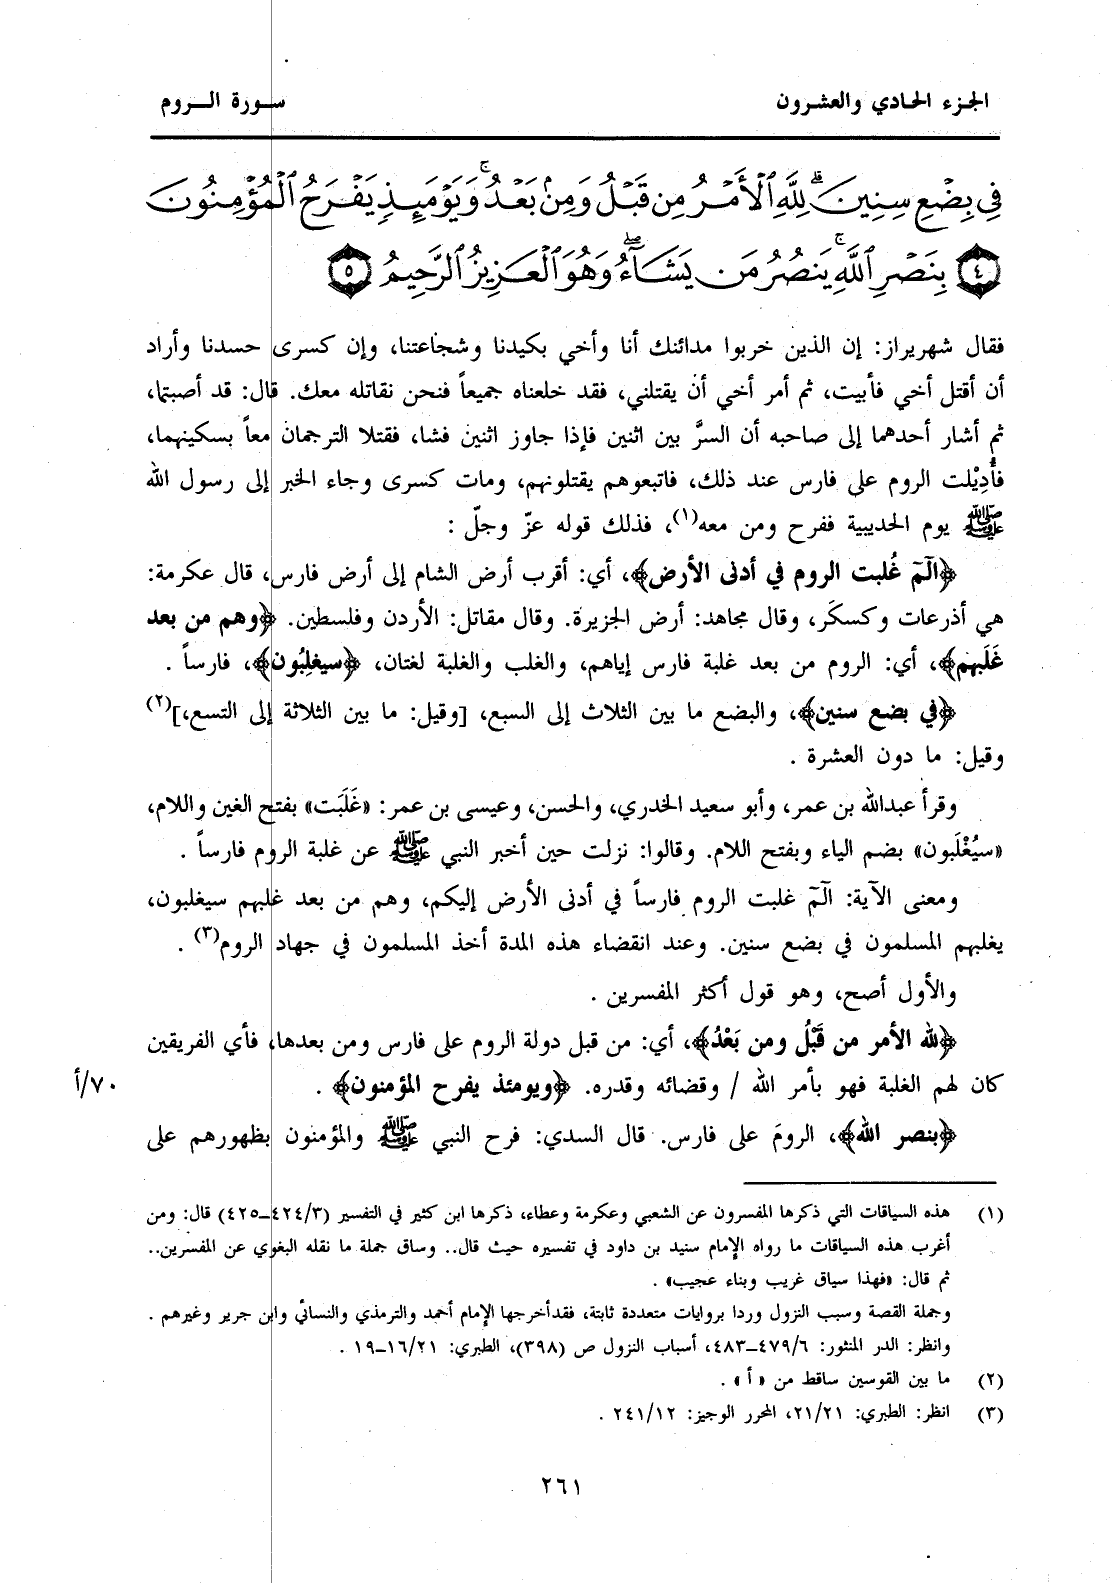 الجزء الحادي والعشرون
سورة الروم
فِي بِضْعِ سِنِينَ ۗ لِلَّهِ ٱلْأَمْرُ مِن قَبْلُ وَمِنۢ بَعْدُ ۚ وَيَوْمَئِذٍ يَفْرَحُ ٱلْمُؤْمِنُونَ
٤ بِنَصْرِ ٱللَّهِ ۚ يَنصُرُ مَن يَشَآءُ ۖ وَهُوَ ٱلْعَزِيزُ ٱلرَّحِيمُ ٥
فقال شهريراز: إن الذين خربوا مدائنك أنا وأخي بكيدنا وشجاعتنا، وإن كسرى حسدنا وأراد
أن أقتل أخي فأبيت، ثم أمر أخي أن يقتلني، فقد خلعناه جميعاً فنحن نقاتله معك. قال: قد أصبتما،
ثم أشار أحدهما إلى صاحبه أن السرَّ بين اثنين فإذا جاوز اثنين فشا، فقتلا الترجمان معاً بسكينهما،
فأُدِيْلت الروم على فارس عند ذلك، فاتبعوهم يقتلونهم، ومات كسرى وجاء الخبر إلى رسول الله
ﷺ يوم الحديبية ففرح ومن معه(١)، فذلك قوله عزّ وجلّ :
﴿الٓمٓ غُلبت الروم في أدنى الأرض﴾، أي: أقرب أرض الشام إلى أرض فارس، قال عكرمة:
هي أذرعات وكسكَر، وقال مجاهد: أرض الجزيرة. وقال مقاتل: الأردن وفلسطين. ﴿وهم من بعد
غَلَبهم﴾، أي: الروم من بعد غلبة فارس إياهم، والغلب والغلبة لغتان، ﴿سيغلِبُون﴾، فارساً .
﴿في بضع سنين﴾، والبضع ما بين الثلاث إلى السبع، [وقيل: ما بين الثلاثة إلى التسع،](٢)
وقيل: ما دون العشرة .
وقرأ عبدالله بن عمر، وأبو سعيد الخدري، والحسن، وعيسى بن عمر: «غَلَبَت» بفتح الغين واللام،
«سيُغْلَبون» بضم الياء وبفتح اللام. وقالوا: نزلت حين أخبر النبي ﷺ عن غلبة الروم فارساً .
ومعنى الآية: الٓمٓ غلبت الروم فارساً في أدنى الأرض إليكم، وهم من بعد غلبهم سيغلبون،
يغلبهم المسلمون في بضع سنين. وعند انقضاء هذه المدة أخذ المسلمون في جهاد الروم(٣) .
والأول أصح، وهو قول أكثر المفسرين .
﴿لله الأمر من قَبْلُ ومن بَعْدُ﴾، أي: من قبل دولة الروم على فارس ومن بعدها، فأي الفريقين
كان لهم الغلبة فهو بأمر الله / وقضائه وقدره. ﴿ويومئذ يفرح المؤمنون﴾ .
٧٠/أ
﴿بنصر الله﴾، الرومَ على فارس. قال السدي: فرح النبي ﷺ والمؤمنون بظهورهم على
(١) هذه السياقات التي ذكرها المفسرون عن الشعبي وعكرمة وعطاء، ذكرها ابن كثير في التفسير (٣/٤٢٤ـ٤٢٥) قال: ومن
أغرب هذه السياقات ما رواه الإمام سنيد بن داود في تفسيره حيث قال.. وساق جملة ما نقله البغوي عن المفسرين..
ثم قال: «فهذا سياق غريب وبناء عجيب» .
وجملة القصة وسبب النزول وردا بروايات متعددة ثابتة، فقد أخرجها الإمام أحمد والترمذي والنسائي وابن جرير وغيرهم .
وانظر: الدر المنثور: ٦/٤٧٩ـ٤٨٣، أسباب النزول ص (٣٩٨)، الطبري: ٢١/١٦ـ١٩ .
(٢) ما بين القوسين ساقط من «أ» .
(٣) انظر: الطبري: ٢١/٢١، المحرر الوجيز: ١٢/٢٤١ .
٢٦١